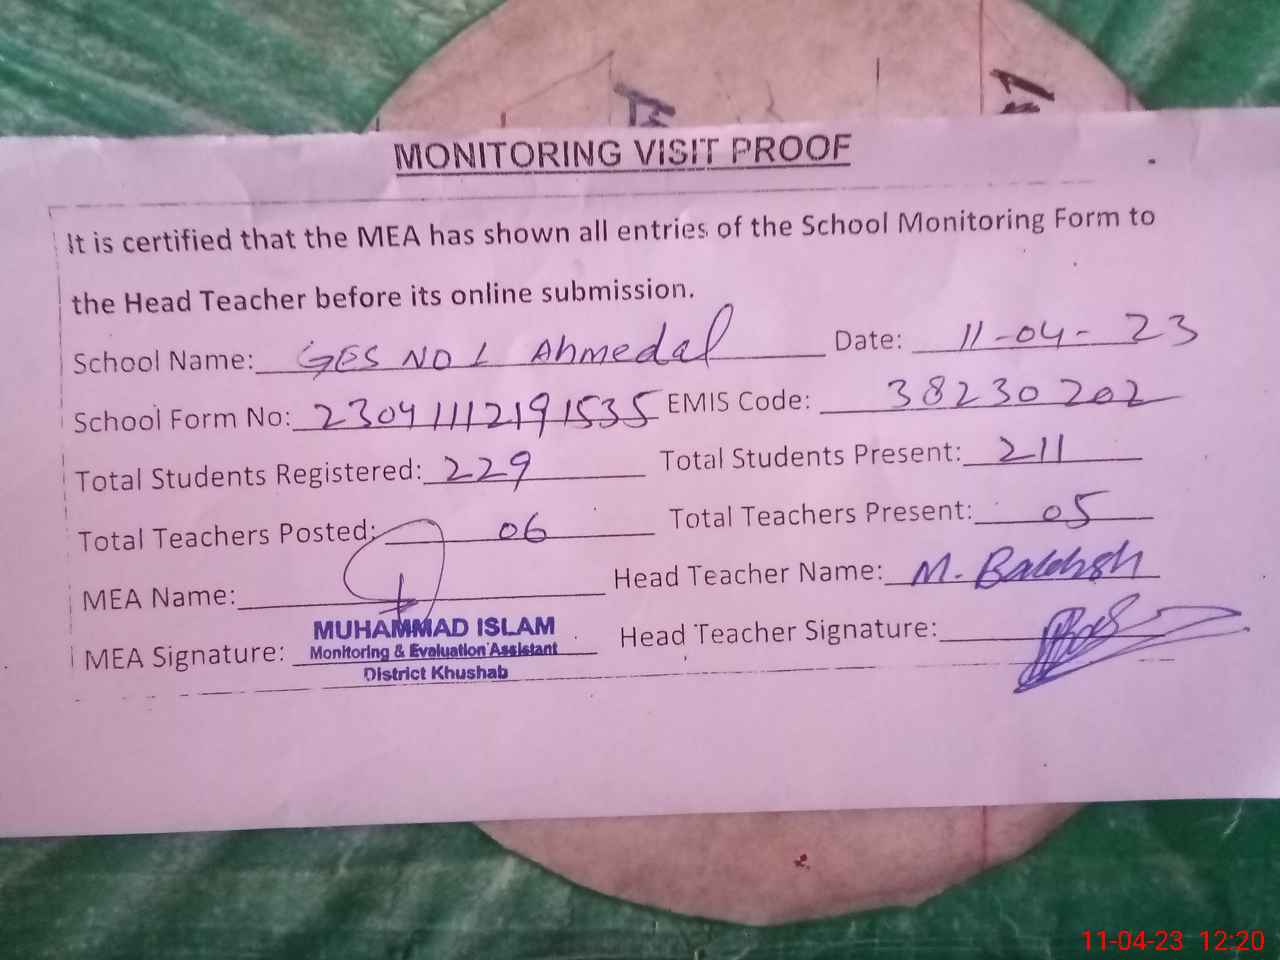 MONITORING VISIT PROOF
It is certified that the MEA has shown all entries of the School Monitoring Form to
the Head Teacher before its online submission.
School Name: GES NO 1 Ahmedal Date: 11-04-23
School Form No: 23041112191535 EMIS Code: 38230202
Total Students Registered: 229 Total Students Present: 211
Total Teachers Posted: 06 Total Teachers Present: 05
MEA Name: Head Teacher Name: M. Bakhsh
MUHAMMAD ISLAM
MEA Signature: Monitoring & Evaluation Assistant Head Teacher Signature:
District Khushab
11-04-23 12:20